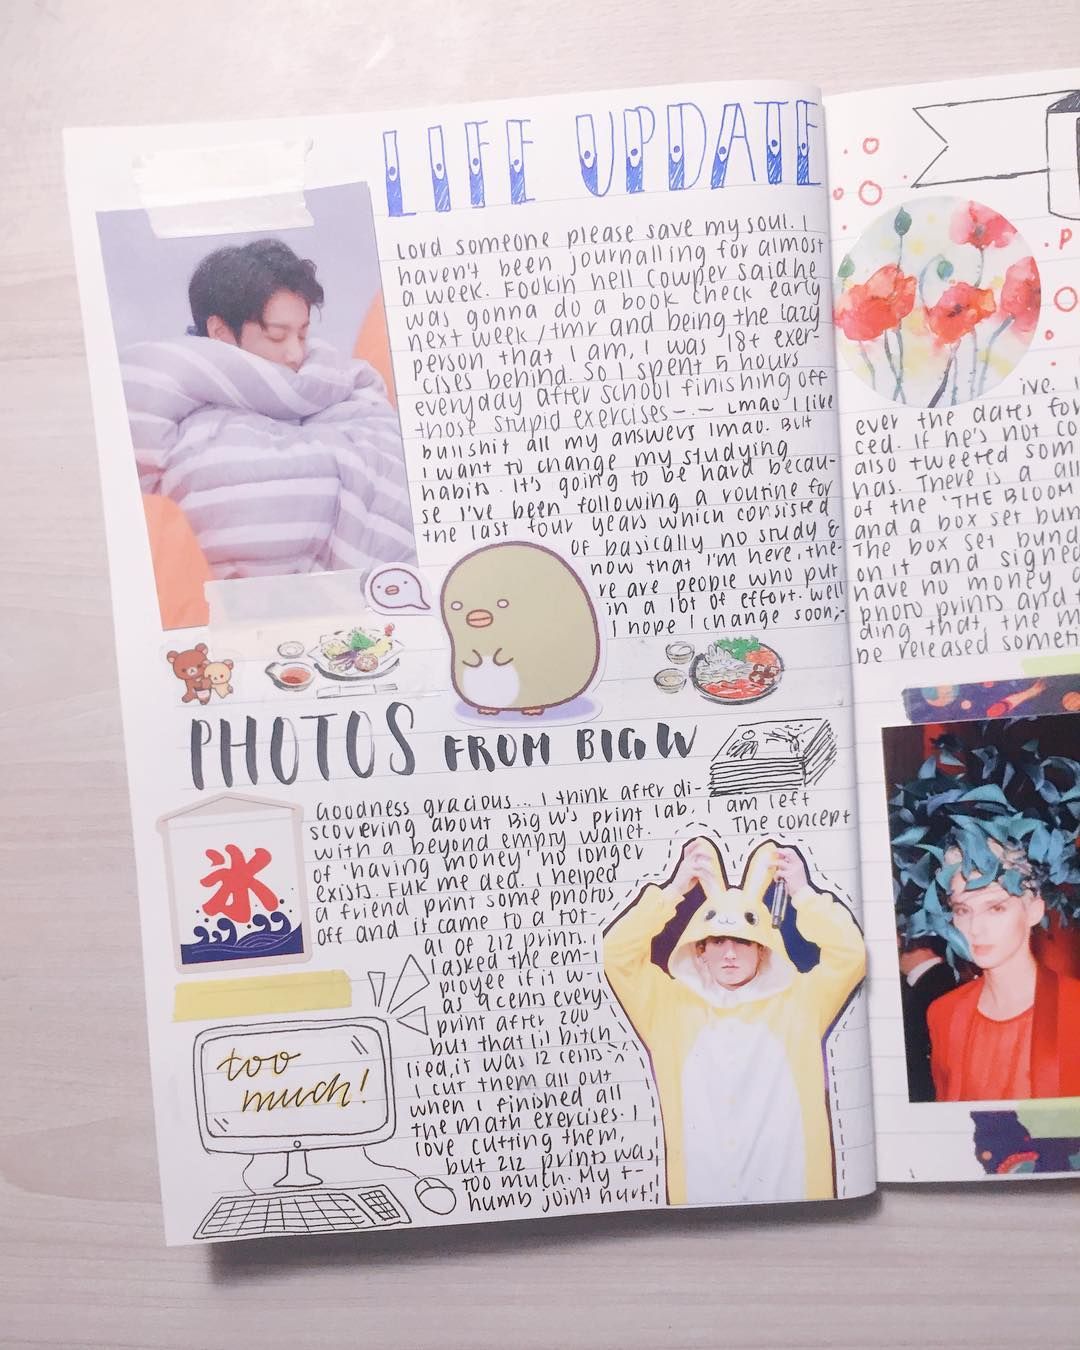 LIFE UPDATE
Lord someone please save my soul. I
haven't been journalling for almost
a week. Foukin hell Cowper said he
was gonna do a book check early
next week / tmr and being the lazy
person that I am, I was 18+ exer-
cises behind. So I spent 5 hours
everyday after school finishing off
those stupid exercises -.- Lmao I like
bullshit all my answers lmao. But
I want to change my studying
habits. It's going to be hard becau-
se I've been following a routine for
the last four years which consisted
of basically no study &
now that I'm here, the-
re are people who put
in a lot of effort. Well
I hope I change soon;-
PHOTOS FROM BIG W
Goodness gracious... I think after di-
scovering about Big W's print lab, I am left
with a beyond empty wallet. The concept
of 'having money' no longer
exists. Fuk me ded. I helped
a friend print some photos
off and it came to a tot-
al of 212 prints. I
I asked the em-
ployee if it w-
as 9 cents every
print after 200
but that lil bitch
lied, it was 12 cents
I cut them all out
when I finished all
the math exercises. I
love cutting them,
but 212 prints was
too much. My t-
humb joint hurt!
氷
too
much!
P
ive. I
ever the dates for
ced. If he's not co
also tweeted som
has. There is a all
of the 'THE BLOOM
and a box set bun
The box set bund
on it and signed
have no money a
photo prints and t
ding that, the m
be released someti